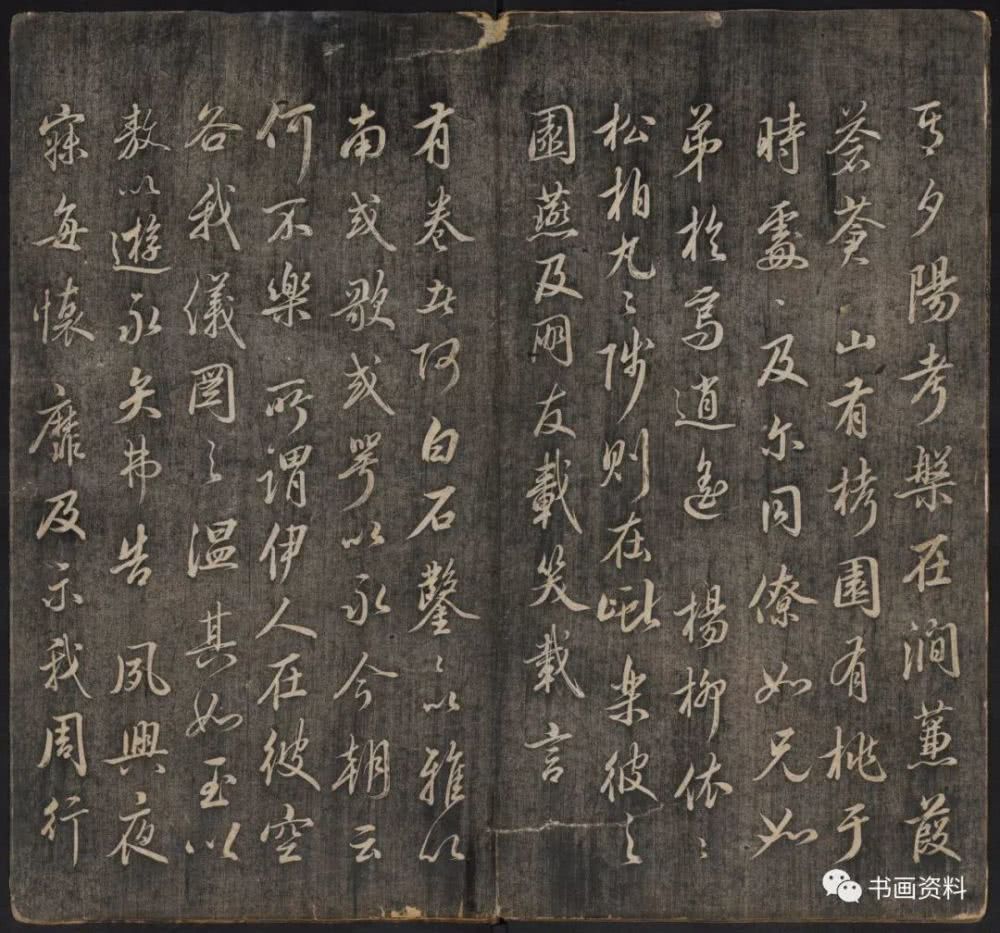 其夕陽考槃在澗蒹葭
蒼蒼山有栲園有桃于
時處〻及尔同僚如兄如
弟於焉逍遙楊柳依〻
松柏丸〻陟則在巘樂彼之
園燕及朋友載笑載言
有卷者阿白石鑿〻以雅以
南或歌或咢以永今朝云
何不樂所謂伊人在彼空
谷我儀圖之温其如玉以
敖以遊永矢弗告夙興夜
寐每懷靡及示我周行
书画资料